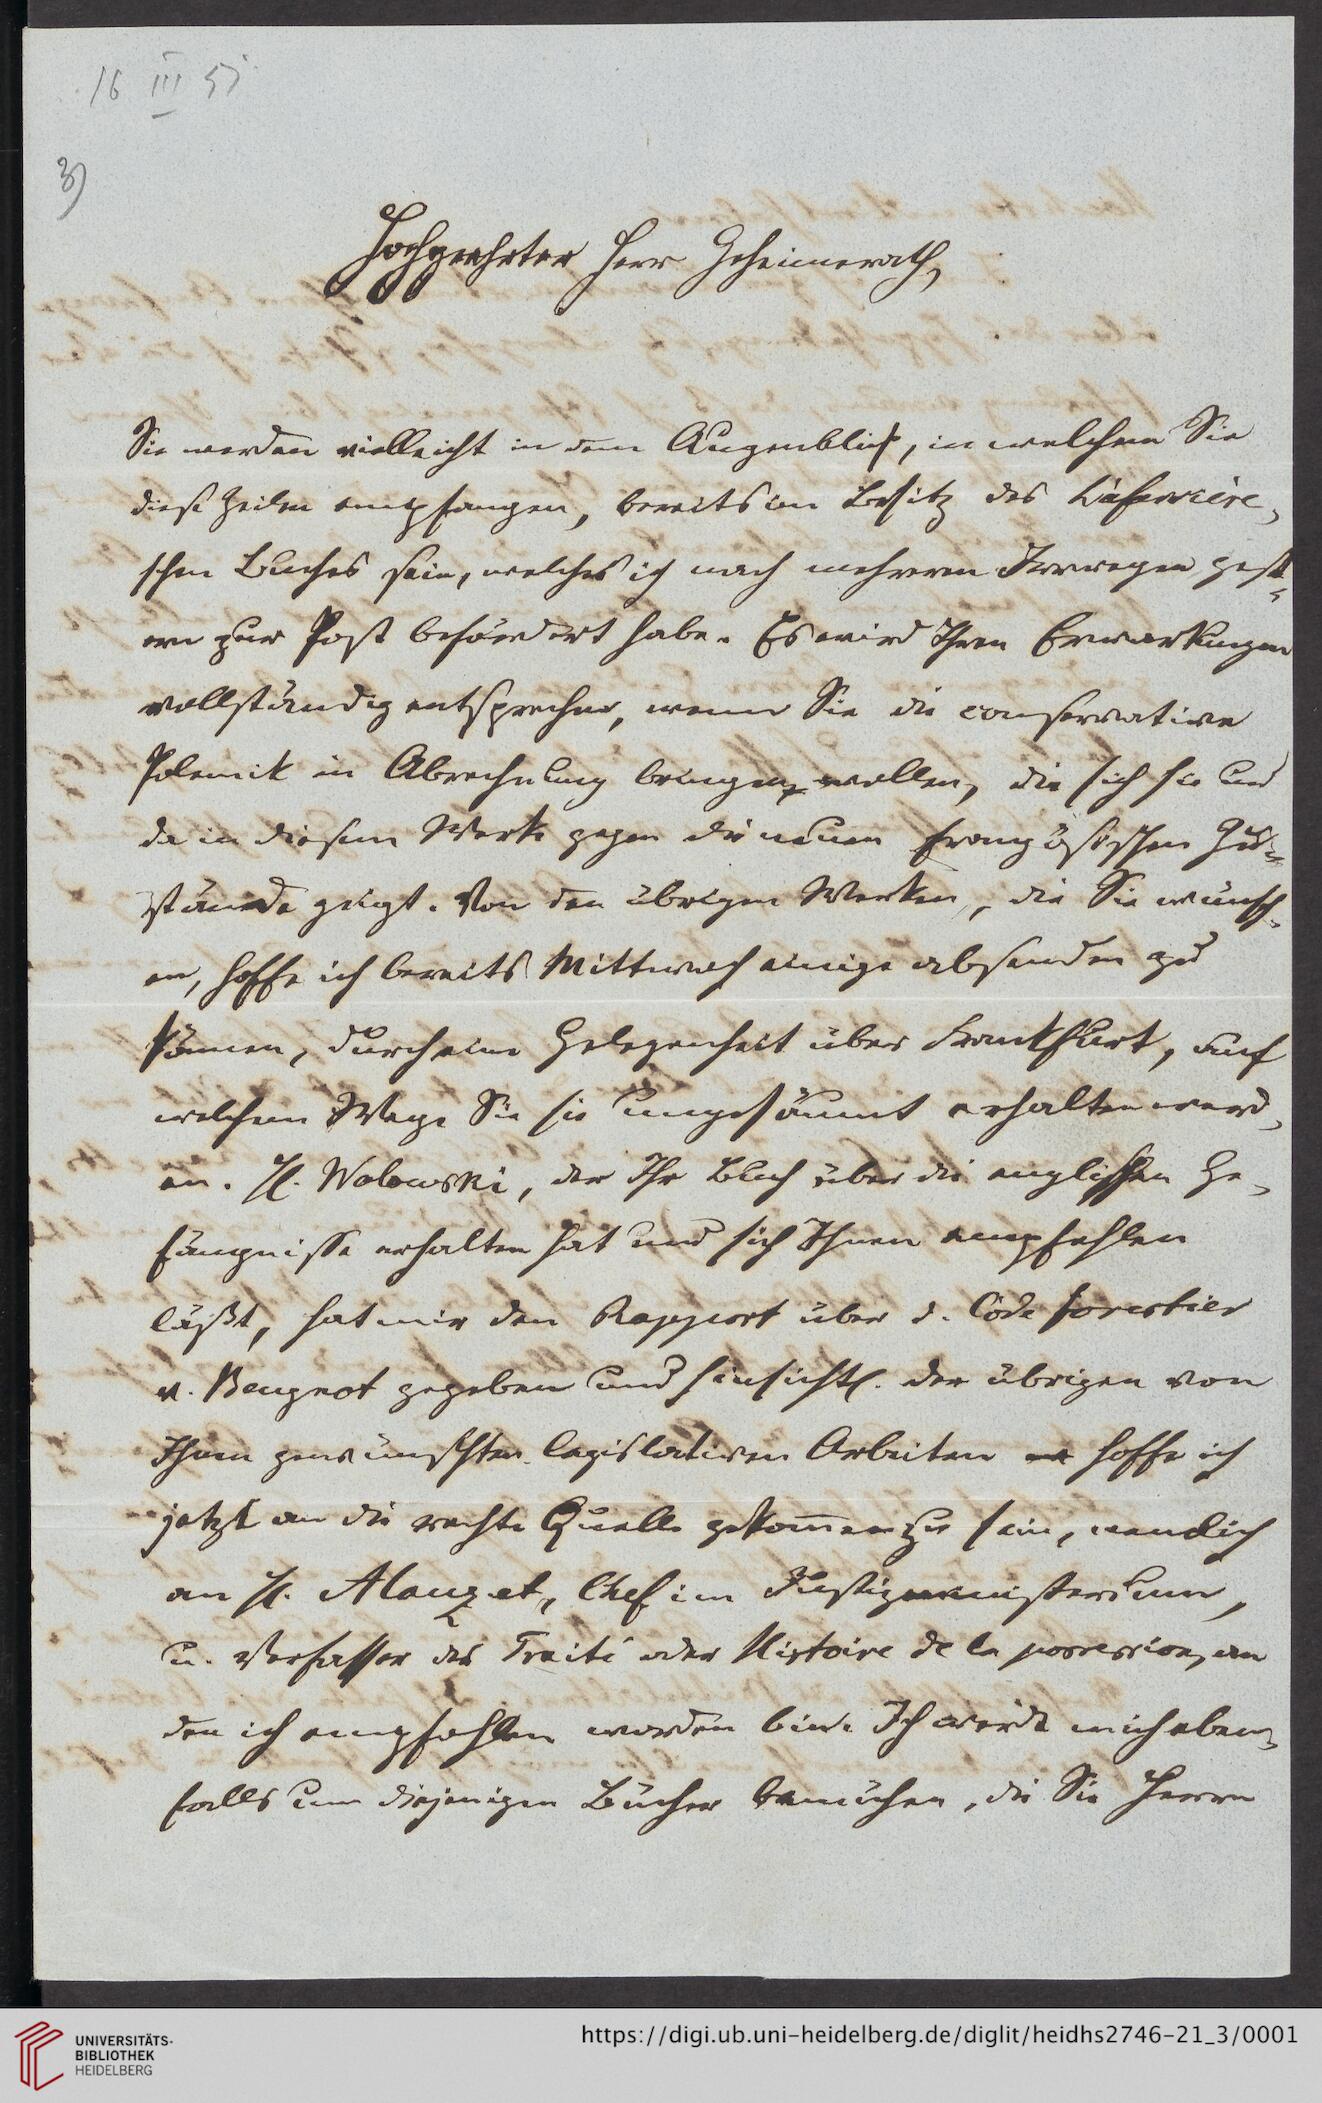 16 III 51
3)
Hochgeehrter Herr Geheimerath,
Sie werden vielleicht in dem Augenblick, in welchem Sie
diese Zeilen empfangen, bereits im Besitz des Laferrière-
schen Buches sein, welches ich nach mehreren Irrwegen gest-
ern zur Post befördert habe. Es wird Ihren Erwartungen
vollständig entsprechen, wenn Sie die conservative
Polemik in Abrechnung bringen wollen, die sich hie und
da in diesem Werke gegen die neuen französischen Zu-
stände zeigt. Von den übrigen Werken, die Sie wünsch-
en, hoffe ich bereits Mittwoch einige absenden zu
können, durch eine Gelegenheit über Frankfurt, auf
welchem Wege Sie sie ungesäumt erhalten werd-
en. H. Wolowski, der Ihr Buch über die englischen Ge-
fängnisse erhalten hat und sich Ihnen empfehlen
läßt, hat mir den Rapport über d. Code forestier
v. Beugnot gegeben und hinsichtl. der übrigen von
Ihnen gewünschten legislativen Arbeiten hoffe ich
jetzt an die rechte Quelle gekommen zu sein, nemlich
an H. Alauzet, Chef im Justizministerium,
u. Verfasser des Traité oder Histoire de la possession, an
den ich empfohlen worden bin. Ich werde mich eben-
falls um diejenigen Bücher bemühen, die Sie Herrn
UNIVERSITÄTS-
BIBLIOTHEK
HEIDELBERG
https://digi.ub.uni-heidelberg.de/diglit/heidhs2746-21_3/0001